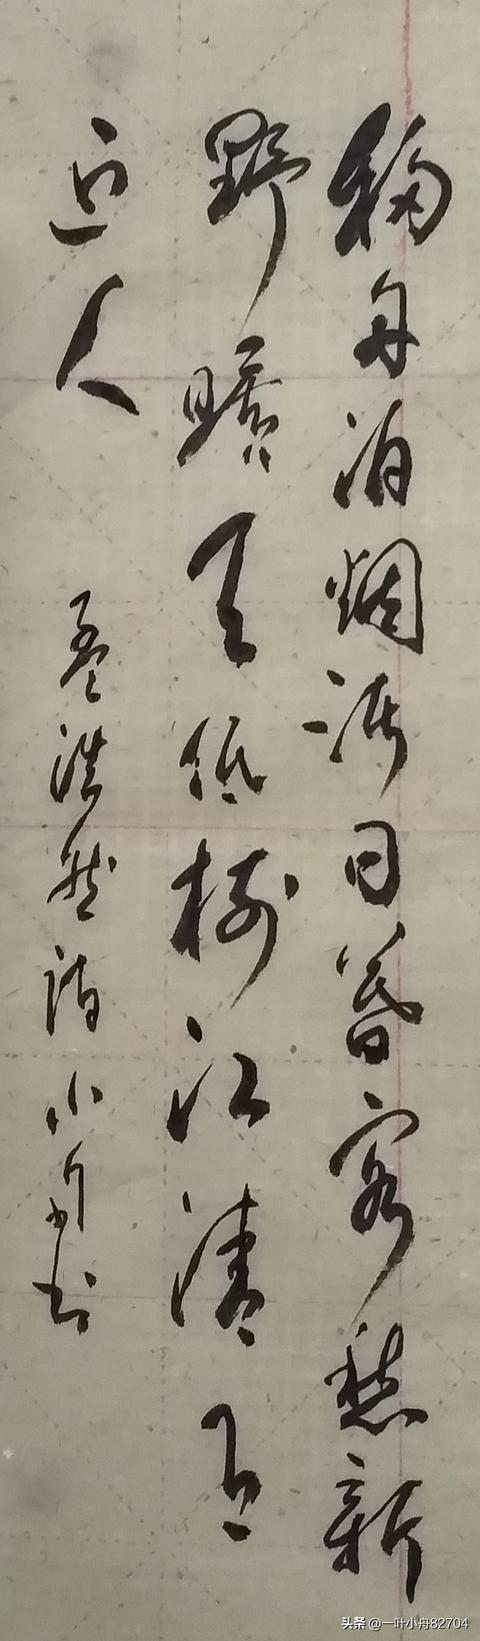 移舟泊烟渚日暮客愁新
野曠天低树江清月
近人
孟浩然诗小舟书
头条 @一叶小舟82704